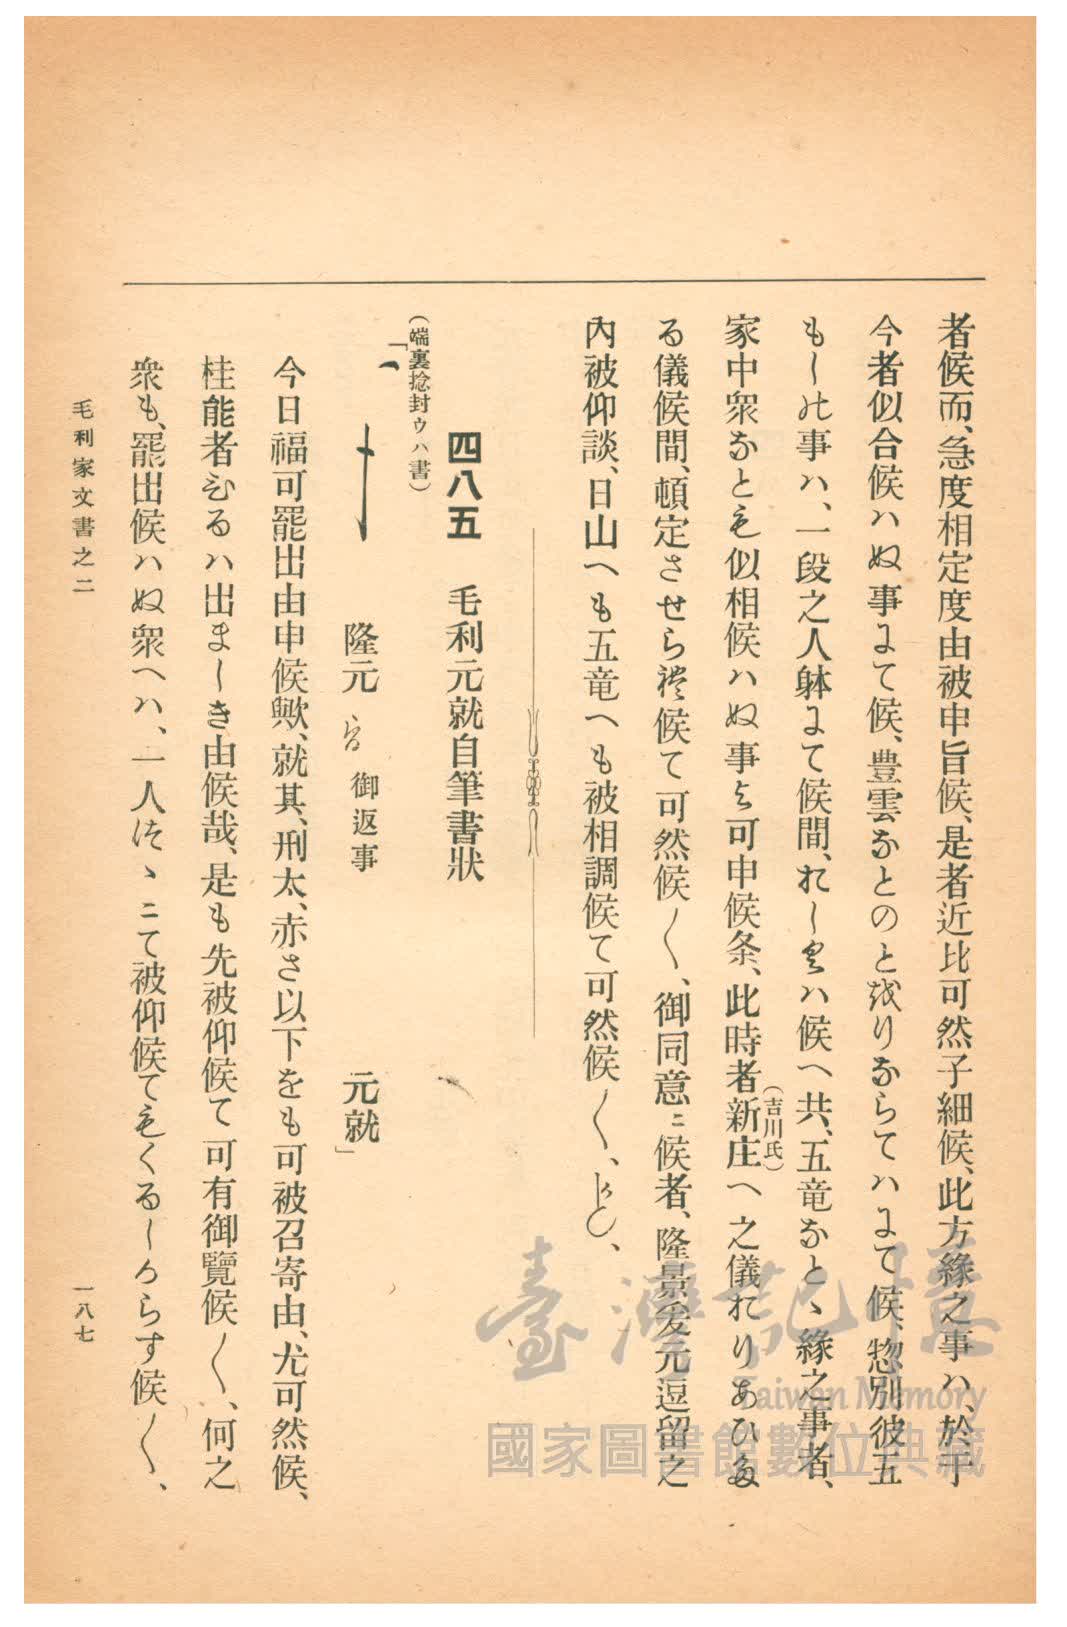 者候而、急度相定度由被申旨候、是者近比可然子細候、此方縁之事ハ、於于
今者似合候ハぬ事にて候、豊雲なとのと越りならてハにて候、惣別彼五
もしの事ハ、一段之人躰にて候間、れし候ハ候へ共、五竜なとゝ縁之事者、
家中衆なとも似相候ハぬ事と可申候条、此時者新庄へ之儀れりあひ
(吉川氏)
る儀候間、頓定させられ候て可然候〳〵、御同意ニ候者、隆景爰元逗留之
内被仰談、日山へも五竜へも被相調候て可然候〳〵、
四八五 毛利元就自筆書状
(端裏捻封ウハ書)
「
隆元 御返事 元就」
今日福可罷出由申候歟、就其、刑太、赤さ以下をも可被召寄由、尤可然候、
桂能者むるハ出ましき由候哉、是も先被仰候て可有御覧候〳〵、何之
衆も、罷出候ハぬ衆へハ、一人つゝニて被仰候てもくるしからす候〳〵、
毛利家文書之二
一八七
臺灣記憶
Taiwan Memory
國家圖書館數位典藏